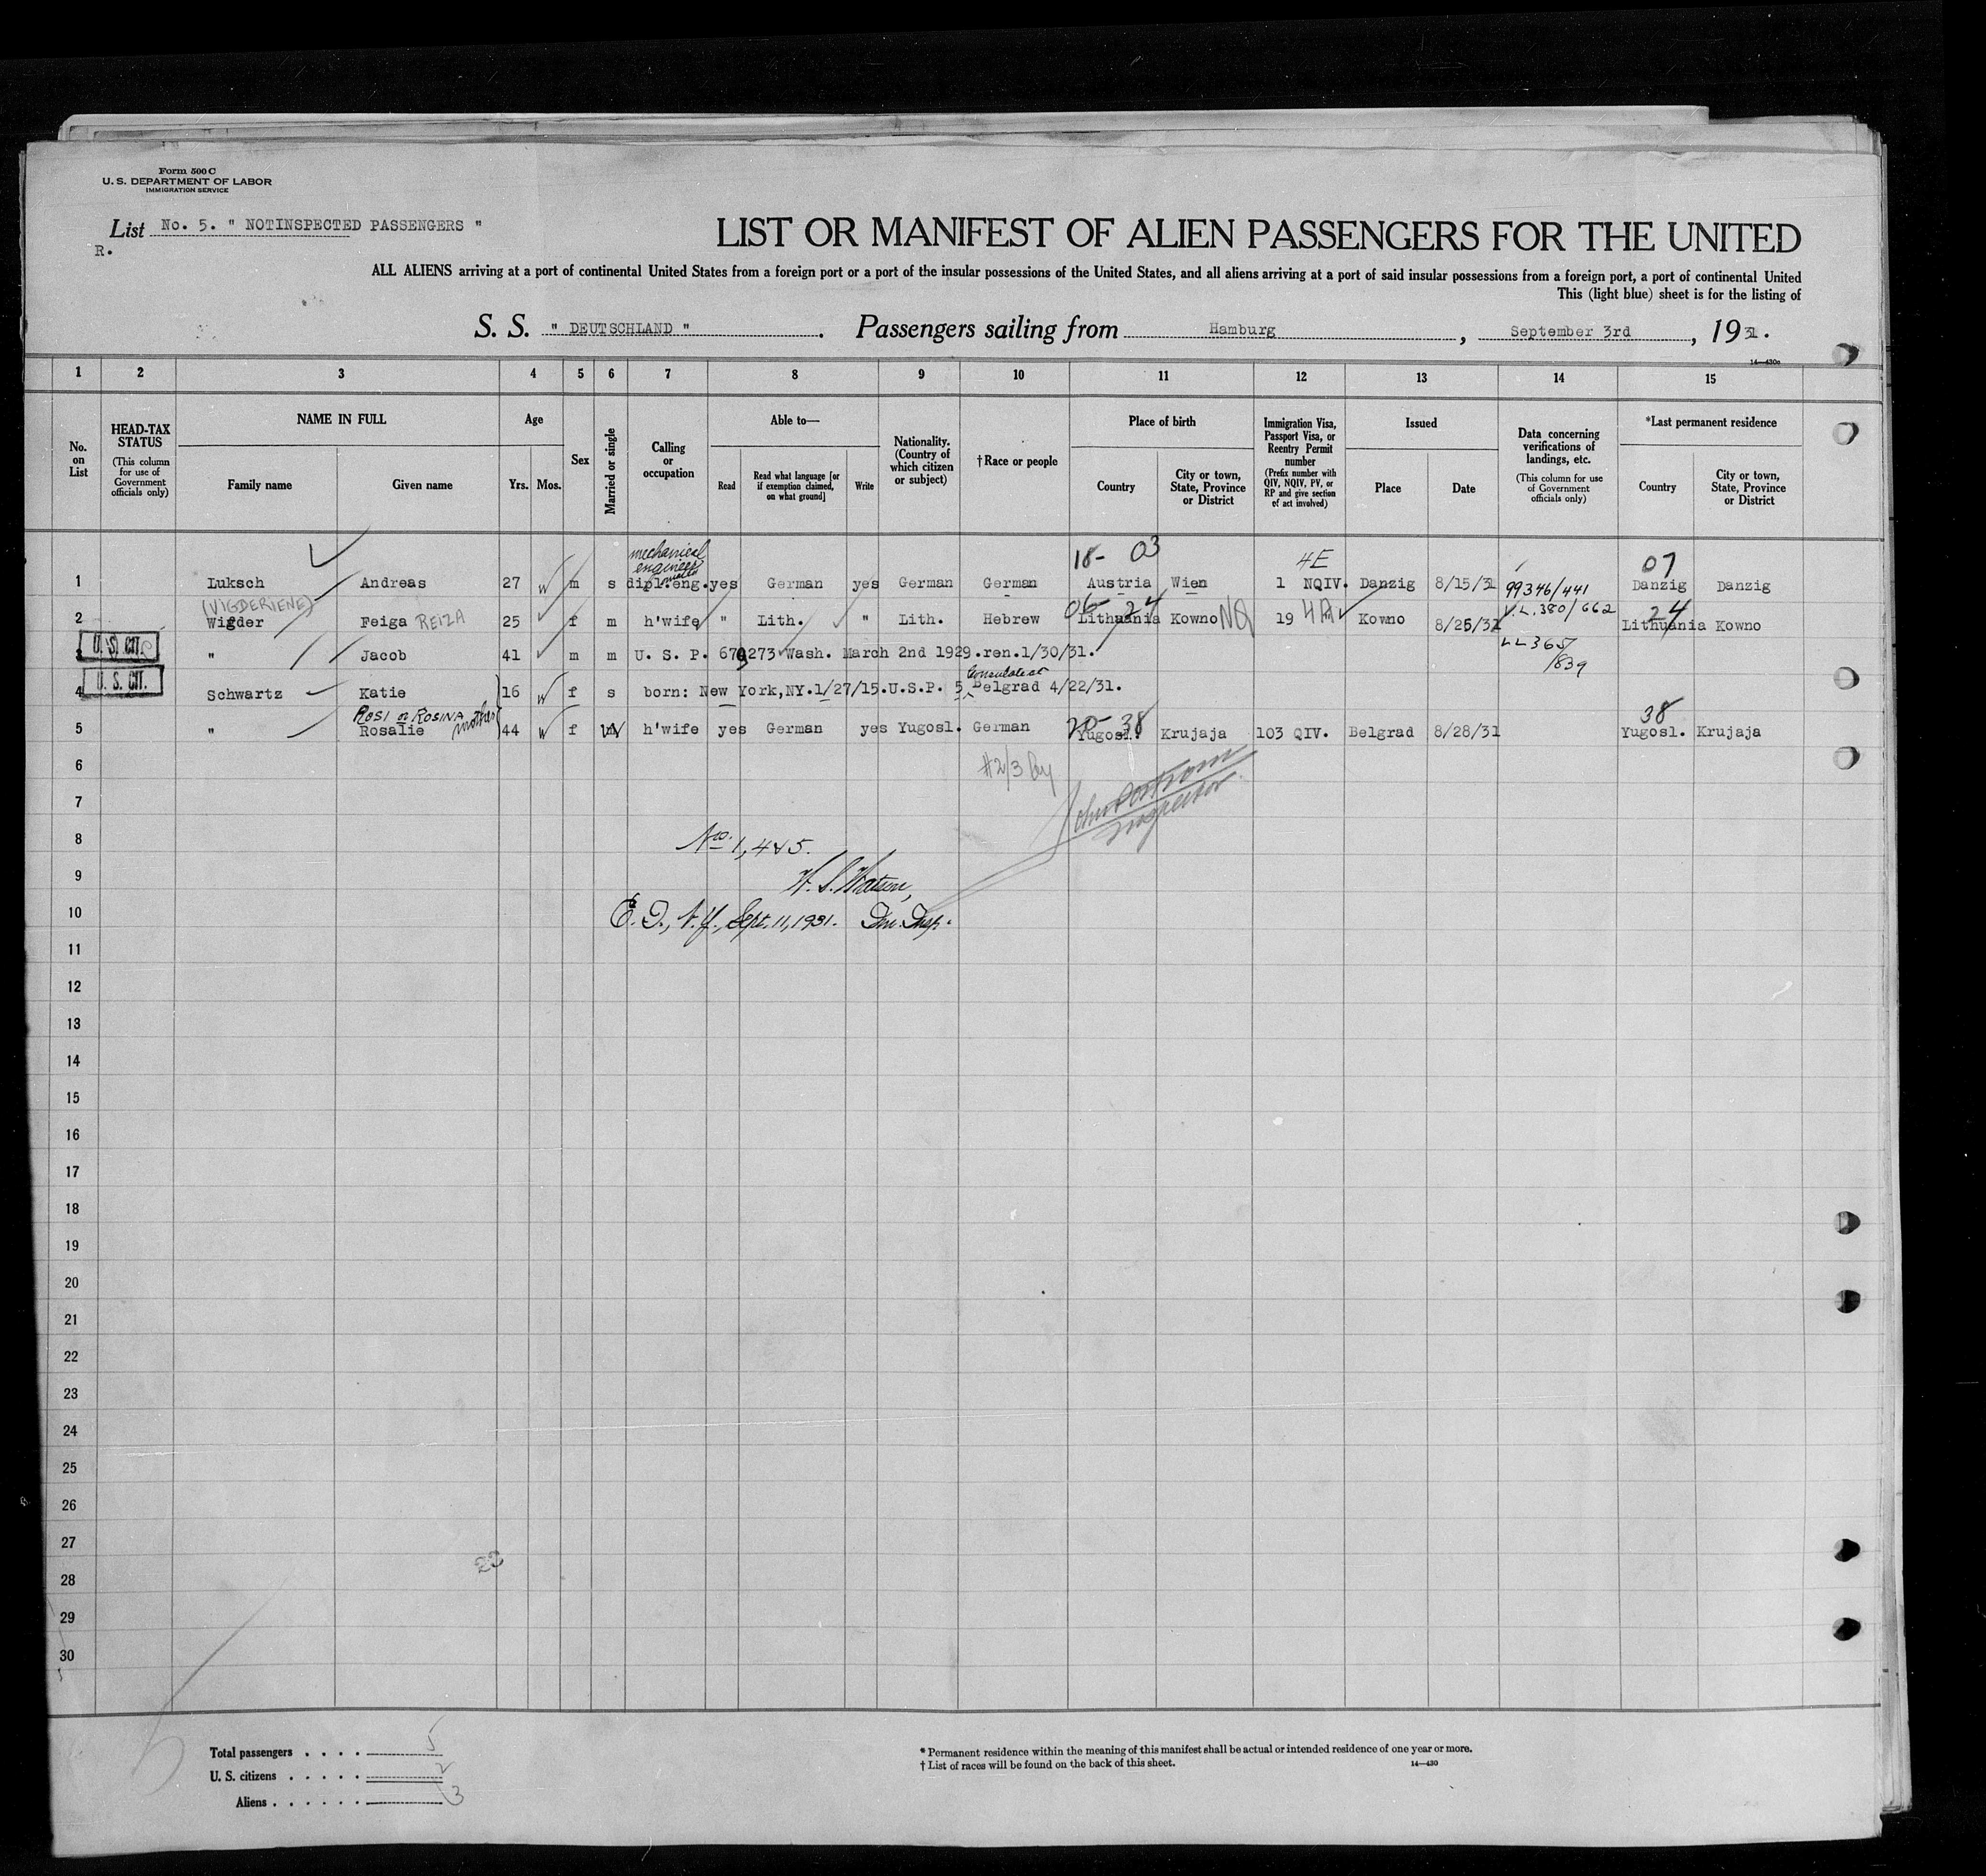 Form 500 C
U. S. DEPARTMENT OF LABOR
IMMIGRATION SERVICE
List No. 5. " NOTINSPECTED PASSENGERS "
R.
LIST OR MANIFEST OF ALIEN PASSENGERS FOR THE UNITED
ALL ALIENS arriving at a port of continental United States from a foreign port or a port of the insular possessions of the United States, and all aliens arriving at a port of said insular possessions from a foreign port, a port of continental United
This (light blue) sheet is for the listing of
S. S. " DEUTSCHLAND ". Passengers sailing from Hamburg, September 3rd, 1931.
14—430c
1 2 3 4 5 6 7 8 9 10 11 12 13 14 15
No. on List
HEAD-TAX STATUS
(This column for use of Government officials only)
NAME IN FULL
Family name
Given name
Age
Yrs. Mos.
Sex
Married or single
Calling or occupation
Able to—
Read
Read what language [or if exemption claimed, on what ground]
Write
Nationality. (Country of which citizen or subject)
†Race or people
Place of birth
Country
City or town, State, Province or District
Immigration Visa, Passport Visa, or Reentry Permit number
(Prefix number with QIV, NQIV, PV, or RP and give section of act involved)
Issued
Place
Date
Data concerning verifications of landings, etc.
(This column for use of Government officials only)
*Last permanent residence
Country
City or town, State, Province or District
mechanical
engineer
18- 03 4E 07
1 Luksch Andreas 27 W m s dipl.eng. yes German yes German German Austria Wien 1 NQIV. Danzig 8/15/31 99346/441 Danzig Danzig
(VIGDERIENE) 06- 24 V.L.380/662 24
2 Wigder Feiga REIZA 25 f m h'wife " Lith. " Lith. Hebrew Lithuania Kowno NQ 19 4A Kowno 8/25/31 Lithuania Kowno
U. S. CIT.
3 " Jacob 41 m m U. S. P. 679273 Wash. March 2nd 1929.ren.1/30/31. LL365/839
U. S. CIT.
Consulate at
4 Schwartz Katie 16 W f s born: New York,NY.1/27/15.U.S.P. 5 Belgrad 4/22/31.
ROSI or ROSINA mother 20- 38 38
5 " Rosalie 44 W f W h'wife yes German yes Yugosl. German Yugosl. Krujaja 103 QIV. Belgrad 8/28/31 Yugosl. Krujaja
6 #2/3 by
7 Inspector
8 Nos. 1, 4 & 5.
9 W. S. Watson,
10 E. D., N. Y., Sept. 11, 1931. Imm. Insp.
11
12
13
14
15
16
17
18
19
20
21
22
23
24
25
26
27
22
28
29
30
Total passengers . . . . 5
U. S. citizens . . . . . 2
Aliens . . . . . . 3
* Permanent residence within the meaning of this manifest shall be actual or intended residence of one year or more.
† List of races will be found on the back of this sheet.
14—430